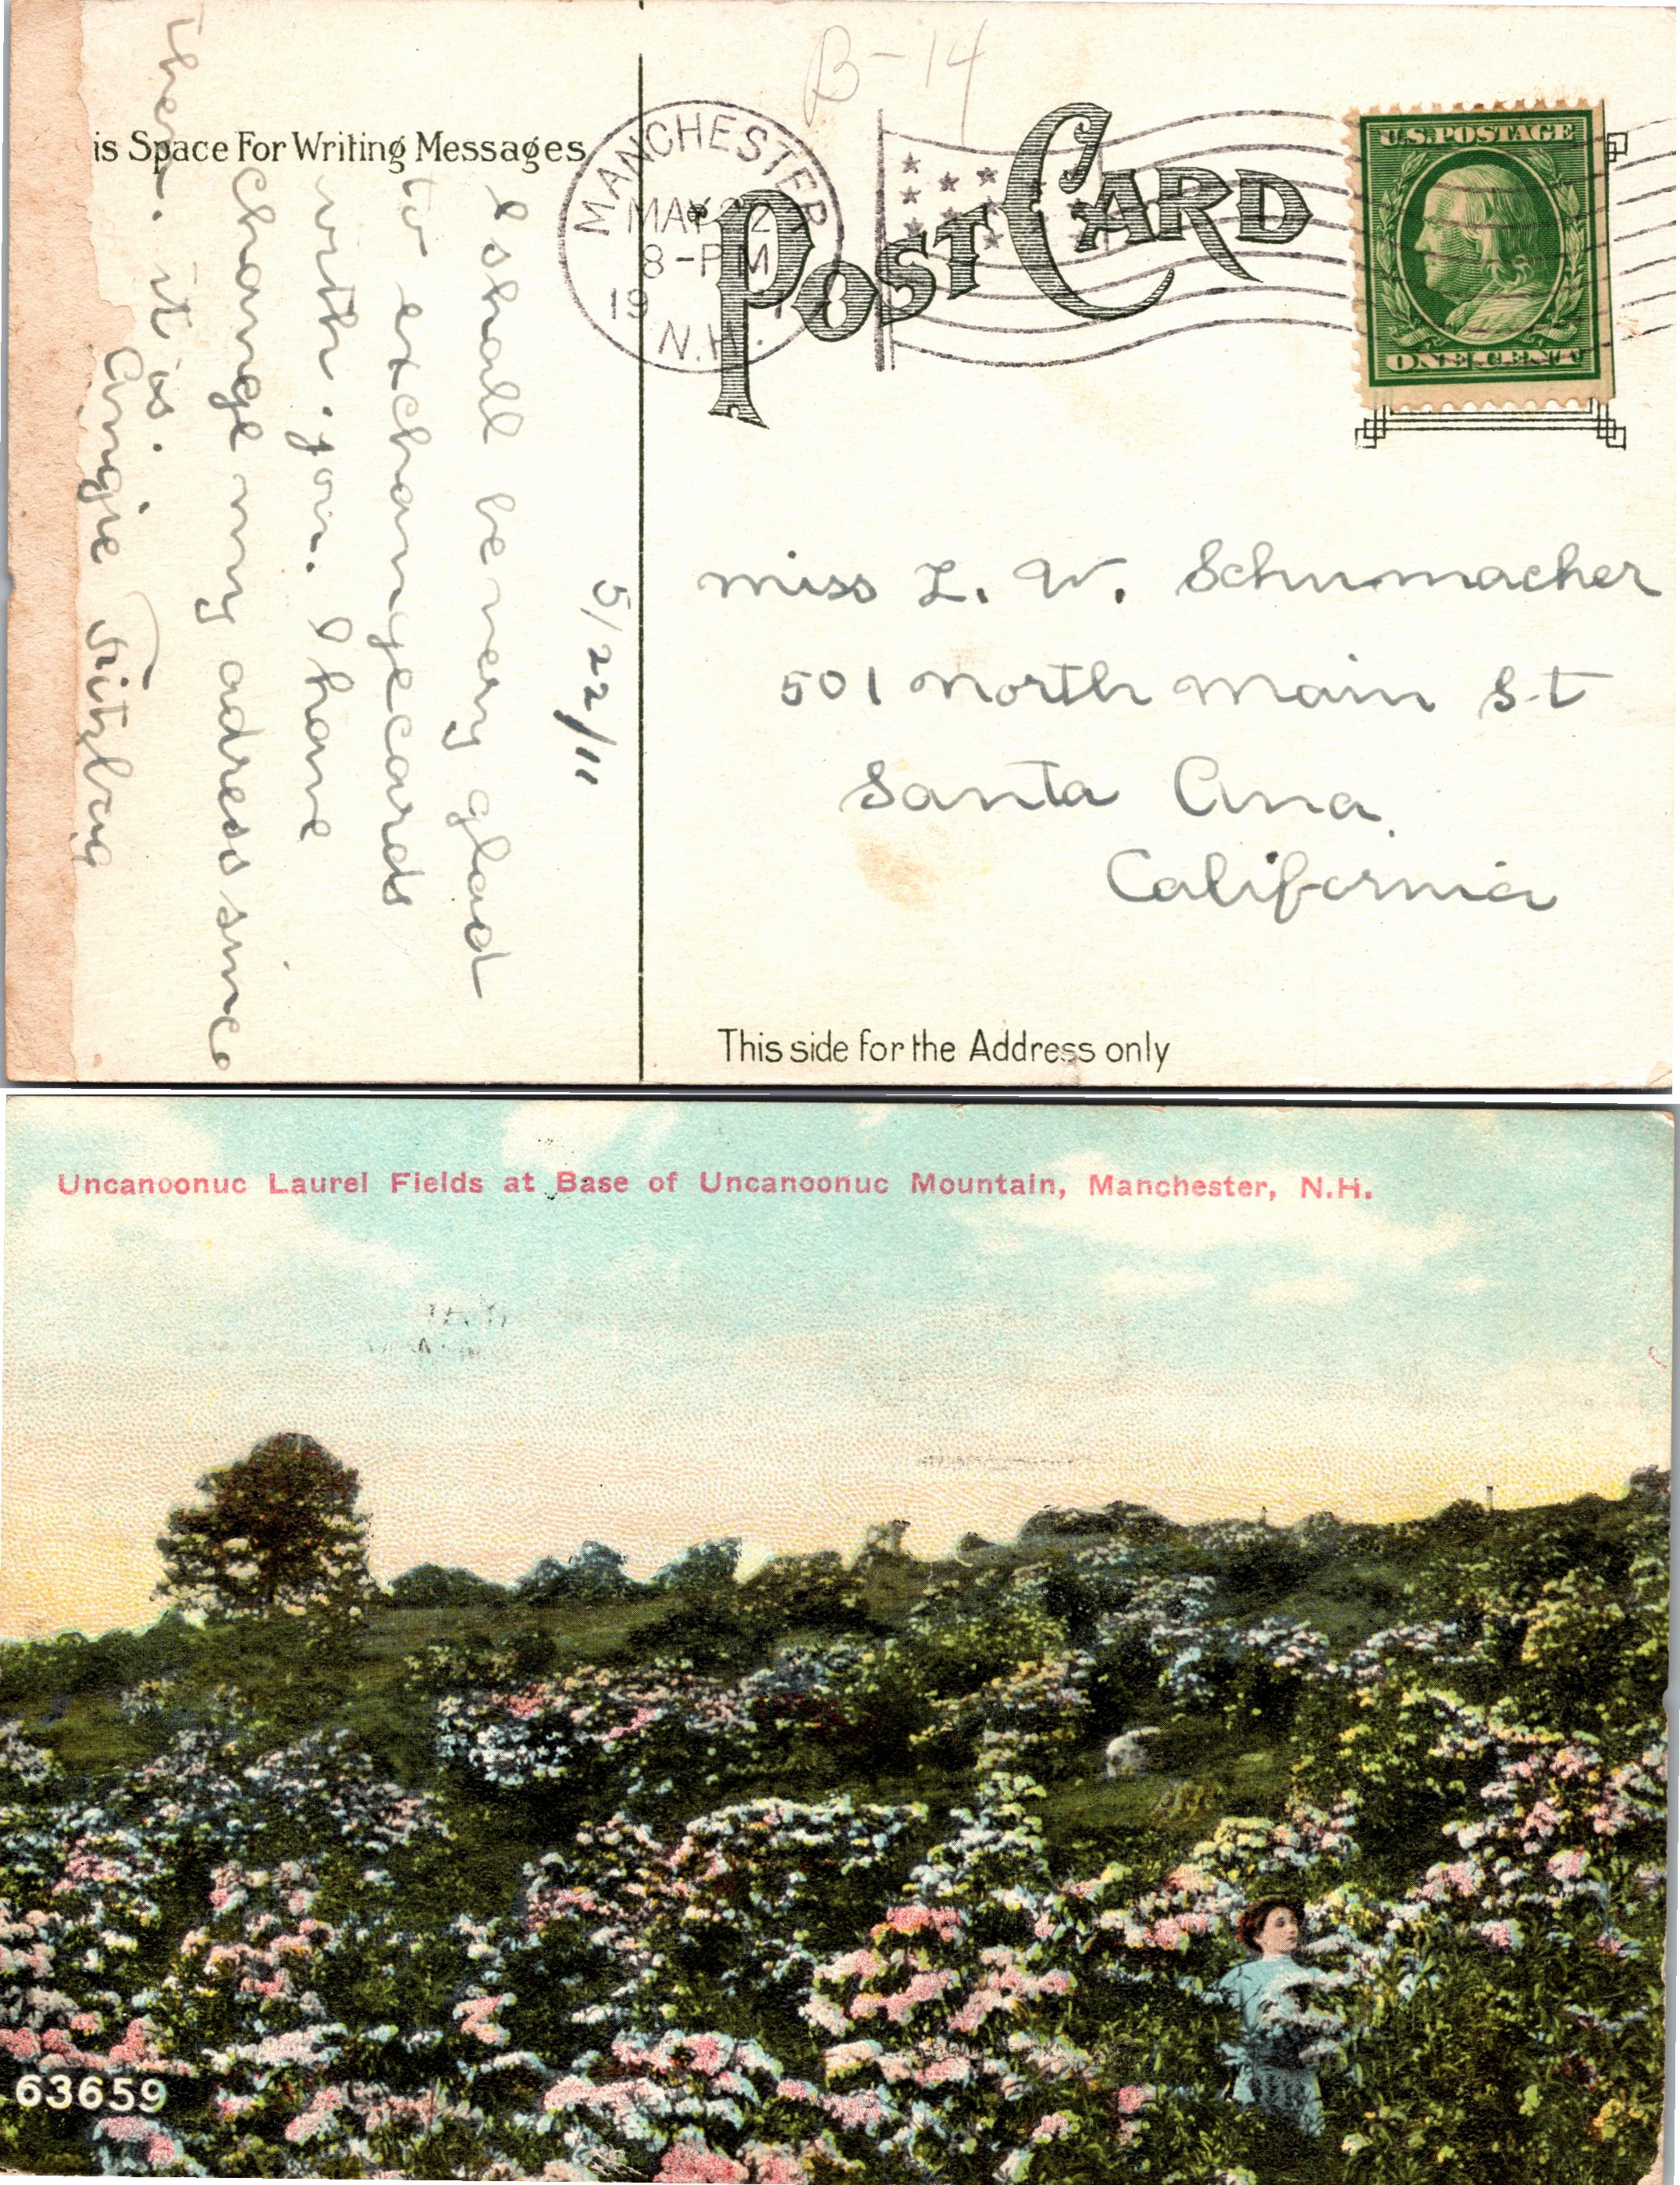 B-14
is Space For Writing Messages
MANCHESTER
MAY 22
8-PM
19
N.H.
POST CARD
U.S. POSTAGE
ONE CENT
5/22/11
I shall be very glad
to exchange cards
with you. I have
change my adress since
then. it is.
Angie
Miss L. W. Schumacher
501 North Main St
Santa Ana.
California
This side for the Address only
Uncanoonuc Laurel Fields at Base of Uncanoonuc Mountain, Manchester, N.H.
63659